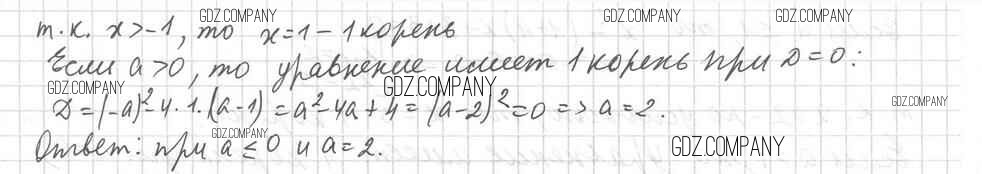 GDZ.COMPANY GDZ.COMPANY GDZ.COMPANY
т.к. x>-1, то x=1 – 1 корень
Если a>0, то уравнение имеет 1 корень при D=0:
GDZ.COMPANY GDZ.COMPANY GDZ.COMPANY
D=(-a)²-4·1·(a-1)=a²-4a+4=(a-2)²=0=>a=2.
GDZ.COMPANY GDZ.COMPANY
Ответ: при a≤0 и a=2.